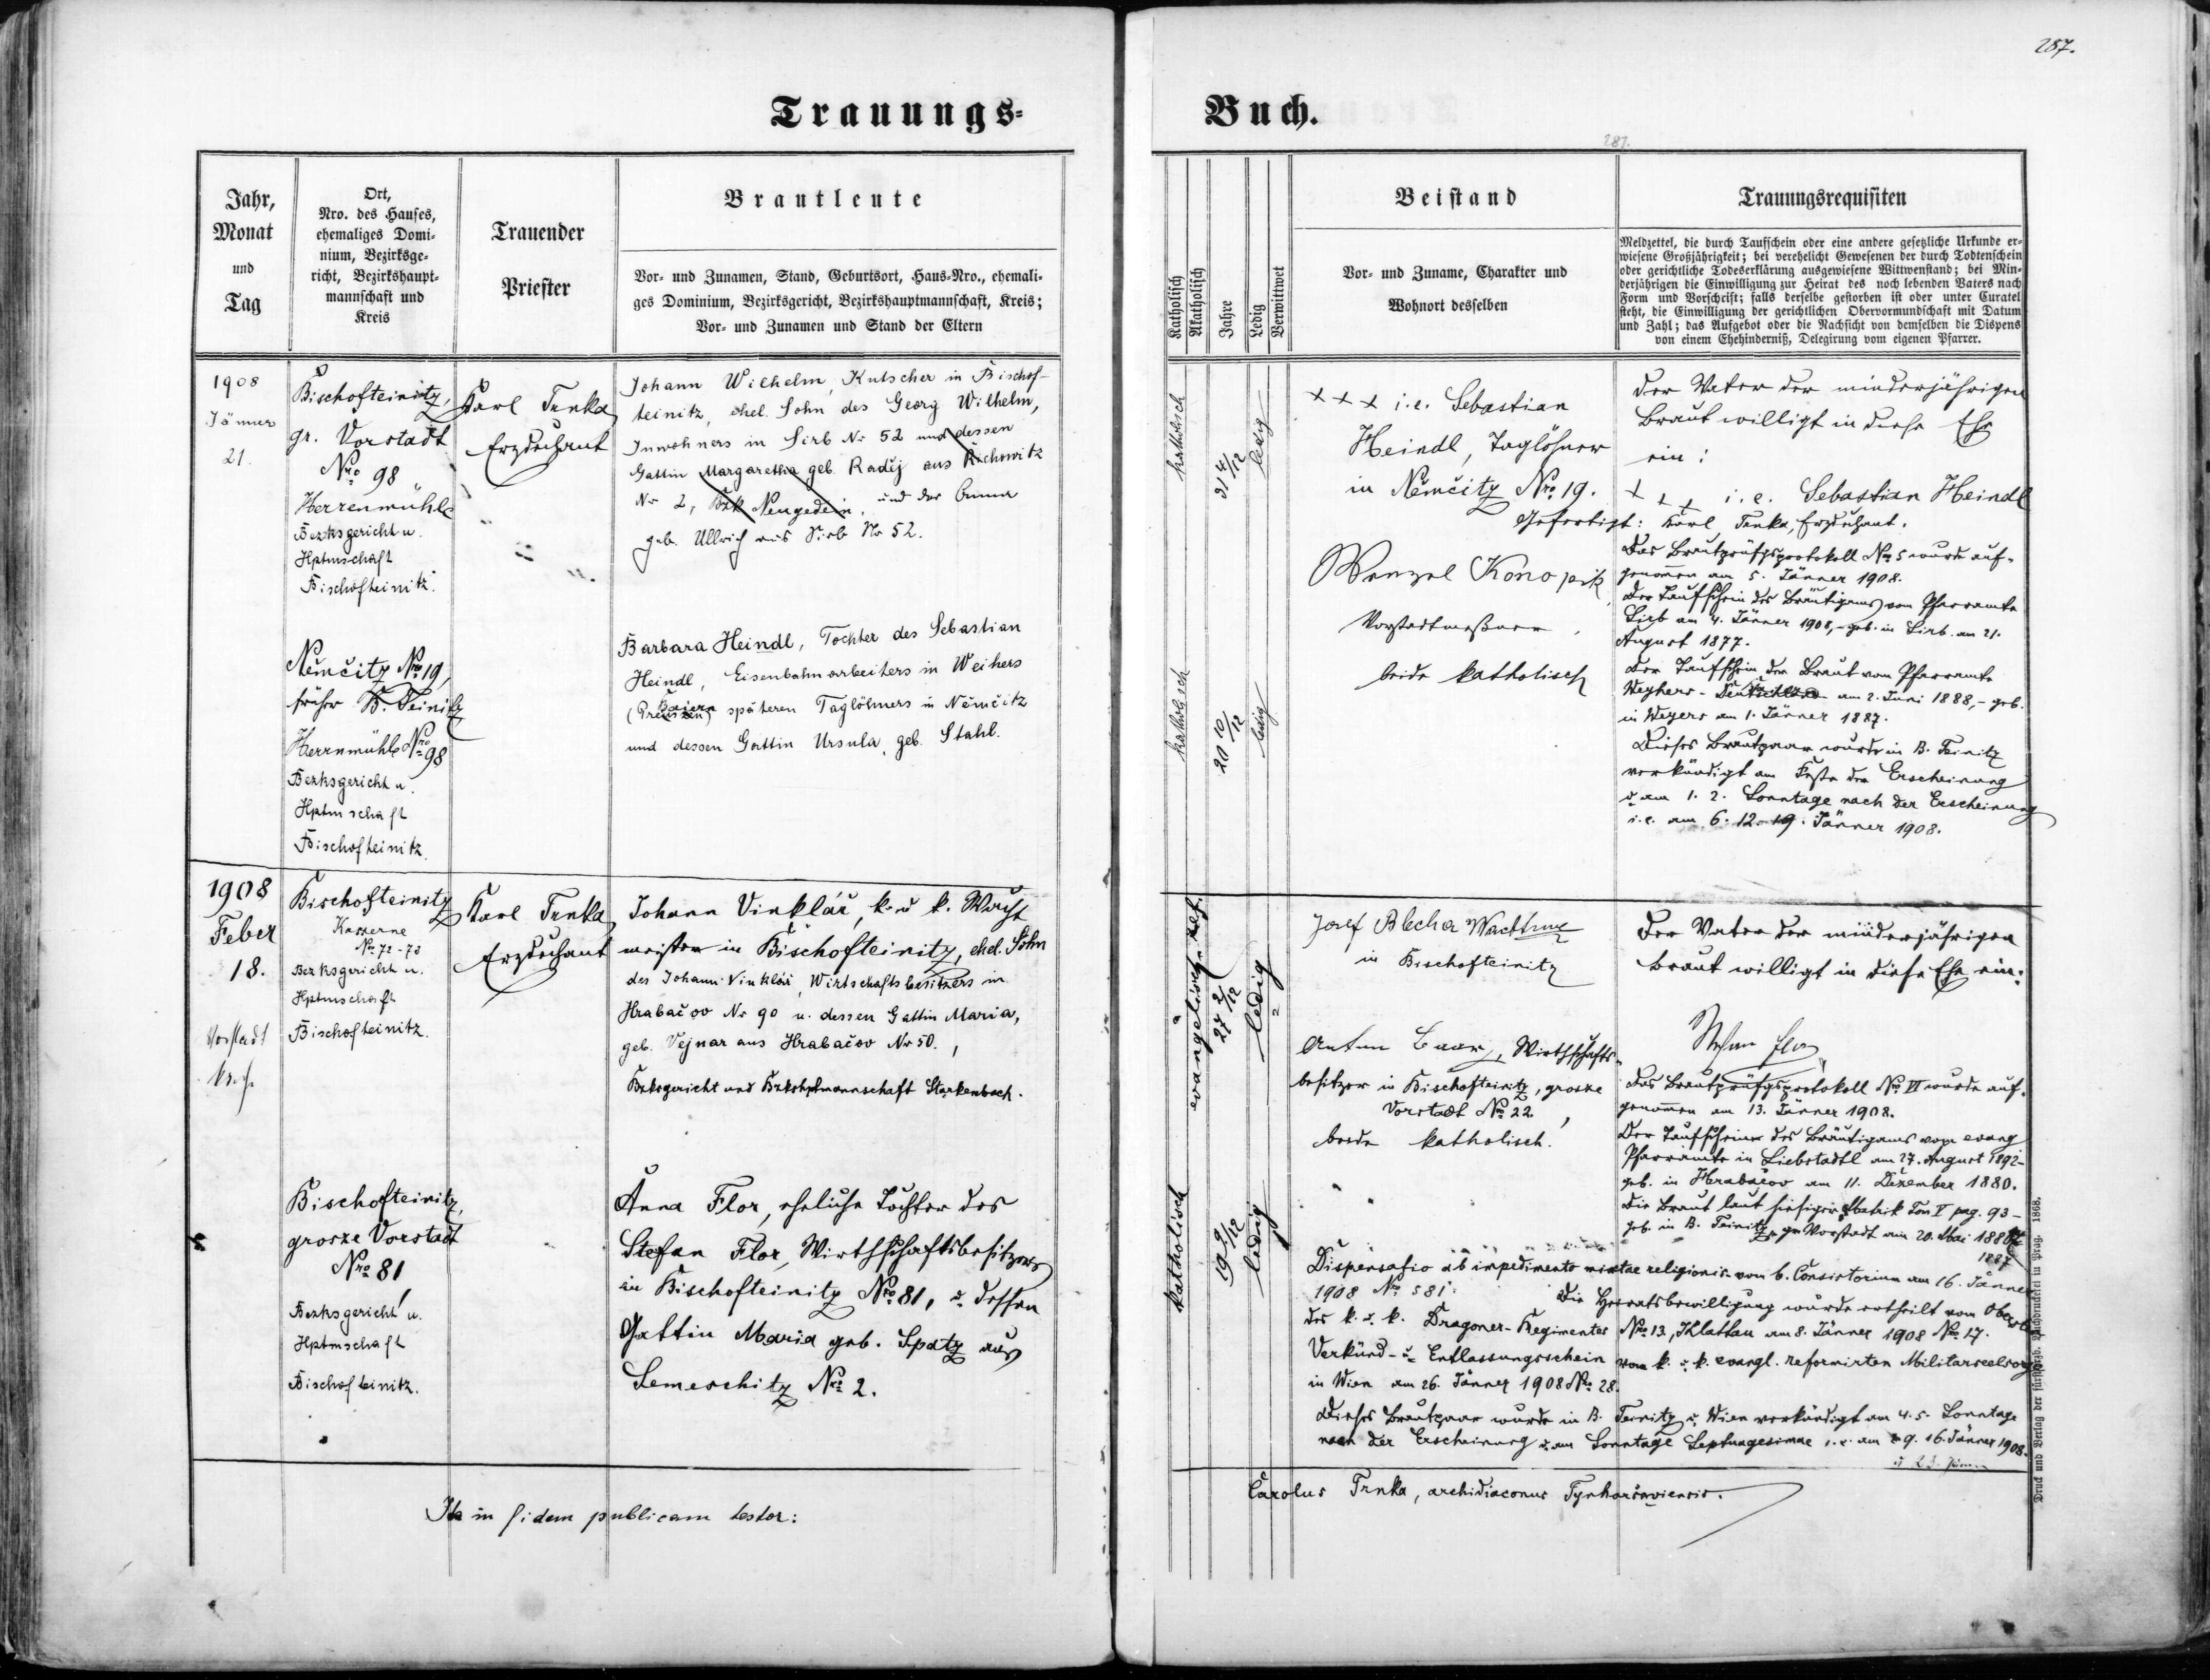 287.
Trauungs-
Buch.
287.
Jahr,
Monat
und
Tag
Ort,
Nro. des Hauses,
ehemaliges Domi-
nium, Bezirksge-
richt, Bezirkshaupt-
mannschaft und
Kreis
Trauender
Priester
Brautleute
Vor- und Zunamen, Stand, Geburtsort, Haus-Nro., ehemali-
ges Dominium, Bezirksgericht, Bezirkshauptmannschaft, Kreis;
Vor- und Zunamen und Stand der Eltern
Katholisch
Akatholisch
Jahre
Ledig
Verwittwet
Beistand
Vor- und Zuname, Charakter und
Wohnort desselben
Trauungsrequisiten
Meldzettel, die durch Taufschein oder eine andere gesetzliche Urkunde er-
wiesene Großjährigkeit; bei verehelicht Gewesenen der durch Todtenschein
oder gerichtliche Todeserklärung ausgewiesene Wittwenstand; bei Min-
derjährigen die Einwilligung zur Heirat des noch lebenden Vaters nach
Form und Vorschrift; falls derselbe gestorben ist oder unter Curatel
steht, die Einwilligung der gerichtlichen Obervormundschaft mit Datum
und Zahl; das Aufgebot oder die Nachsicht von demselben die Dispens
von einem Ehehinderniß, Delegirung vom eigenen Pfarrer.
1908
Jänner
21.
Bischofteinitz,
gr. Vorstadt
Nro 98
Herrenmühle
Bezksgericht u.
Hptmschaft
Bischofteinitz.
Karl Trnka
Erzdechant
Johann Wilhelm, Kutscher in Bischof-
teinitz, ehel. Sohn des Georg Wilhelm,
Inwohners in Sirb Nr 52 und dessen
Gattin Margaretha geb. Radij aus Kschowitz
Nr 2, Bzk Neugedein. und der Anna
geb. Ullrich aus Sirb Nr 52.
Němčitz Nro 19,
früher B. Teinitz
Herrnmühle Nro 98
Bezksgericht u.
Hptmschaft
Bischofteinitz.
Barbara Heindl, Tochter des Sebastian
Heindl, Eisenbahnarbeiters in Weihers
Baiern
(Preussen) späteren Taglöhners in Němčitz
und dessen Gattin Ursula, geb. Stahl.
katholisch
31 4/12
ledig
katholisch
20 10/12
ledig
+++ i.e. Sebastian
Heindl, Taglöhner
in Němčitz Nro 19.
Gefertigt: Karl Trnka, Erzdechant.
Wenzel Konopik
Vorstadtmeßner,
beide katholisch
Der Vater der minderjährigen
Braut willigt in diese Ehe
ein:
+++ i.e. Sebastian Heindl
Das Brautprüfgsprotokoll No 5 wurde auf-
genommen am 5. Jänner 1908.
Der Taufschein des Bräutigams vom Pfarramte
Sirb am 4. Jänner 1908, - geb. in Sirb am 21.
August 1877.
Der Taufschein der Braut vom Pfarramte
Weyhers - am 2. Juni 1888, - geb.
in Weyers am 1. Jänner 1887.
Dieses Brautpaar wurde in B. Teinitz
verkündigt am Feste der Erscheinung
u. am 1. 2. Sonntage nach der Erscheinung
i.e. am 6. 12. 19. Jänner 1908.
1908
Feber
18.
Vorstadt
Bischofteinitz
Kaserne
No 72-73
Bezksgericht u.
Hptmschaft
Bischofteinitz.
Karl Trnka
Erzdechant
Johann Vinklář, k. u k. Wacht
meister in Bischofteinitz, ehel. Sohn
des Johann Vinklář, Wirtschaftsbesitzers in
Hrabačov Nr 90 u. dessen Gattin Maria,
geb. Vejnar aus Hrabačov Nr 50.,
Bzksgericht und Bzkshptmannschaft Starkenbach.
Bischofteinitz,
grosze Vorstadt
Nro 81,
Bezksgericht u.
Hptmschaft
Bischofteinitz.
Anna Flor, eheliche Tochter des
Stefan Flor, Wirthschaftsbesitzers
in Bischofteinitz Nro 81, u. dessen
Gattin Maria geb. Spatz aus
Semeschitz No 2.
evangelisch ref.
27 2/12
ledig
katholisch
19 9/12
ledig
Josef Blecha Wachtm
in Bischofteinitz
Anton Baar, Wirthschafts-
besitzer in Bischofteinitz, grosse
Vorstadt No 22,
beide katholisch.
Der Vater der minderjährigen
Braut willigt in diese Ehe ein:
Stefan Flor
Das Brautprüfgsprotokoll No VI wurde auf-
genommen am 13. Jänner 1908.
Der Taufschein des Bräutigams vom evang
Pfarramte in Liebstadtl am 27. August 1892 -
geb. in Hrabačov am 11. Dezember 1880.
Die Braut laut hiesiger Matrik Tom V pag. 93 -
geb. in B. Teinitz, gr. Vorstadt am 20. Mai 1888
1887
Dispensatio ab impedimento mixtae religionis vom b. Consistorium am 16. Jänner
1908 No 581. Die Heiratsbewilligung wurde ertheilt vom Obersten
des k. u. k. Dragoner-Regimentes No 13, Klattau am 8. Jänner 1908 No 17.
Verkünd- u. Entlassungsschein vom k. u. k. evangl. reformirten Militärseelsorge
in Wien am 26. Jänner 1908 No 28.
Dieses Brautpaar wurde in B. Teinitz u. Wien verkündigt am 4. 5. Sonntage
nach der Erscheinung u. am Sonntage Septuagesimae i.e. am 9. 16. Jänner 1908.
Ita in fidem publicam testor:
Carolus Trnka, archidiaconus Tynhoršoviensis.
Druck und Verlag der fürsterzb. Buchdruckerei in Prag. 1868.